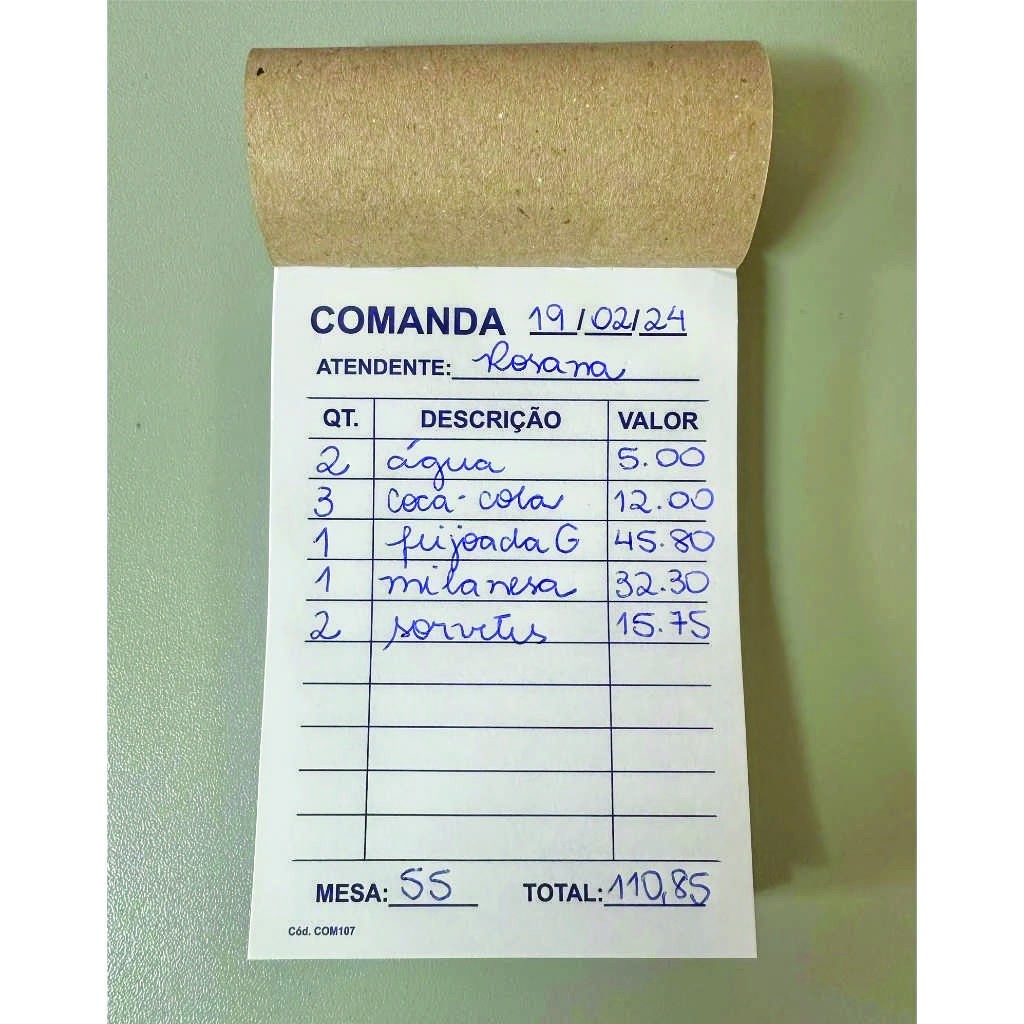 COMANDA 19/02/24
ATENDENTE: Rosana
QT. DESCRIÇÃO VALOR
2 água 5.00
3 coca-cola 12.00
1 feijoada G 45.80
1 milanesa 32.30
2 sorvetes 15.75
MESA: 55 TOTAL: 110,85
Cód. COM107